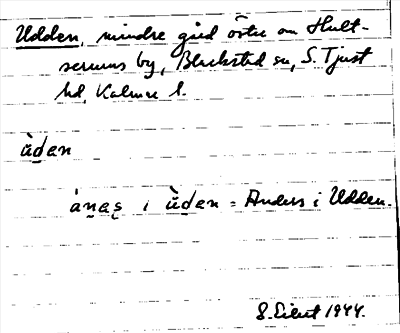 Udden, mindre gård öster om Hult-
serums by, Blackstad sn, S. Tjust
hd, Kalmar l.
ùḏen
ańa̱ş i ùḏen = Anders i Udden.
S. 1944.